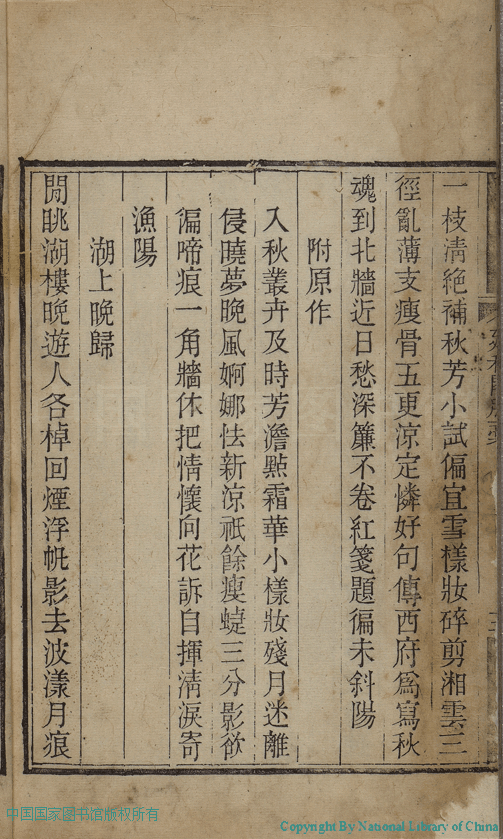 一枝淸絶補秋芳小試偏宜雪樣妝碎剪湘雲三
徑亂薄支瘦骨五更涼定憐好句傳西府爲寫秋
魂到北牆近日愁深簾不卷紅箋題徧未斜陽
附原作
入秋叢卉及時芳澹㸃霜華小樣妝殘月迷離
侵曉夢晚風婀娜怯新涼祇餘瘦蜨三分影欲
徧啼痕一角牆休把情懷向花訴自揮淸淚寄
漁陽
湖上晚歸
閒眺湖樓晚遊人各棹回煙浮帆影去波漾月痕
中国国家图书馆版权所有
Copyright By National Library of China